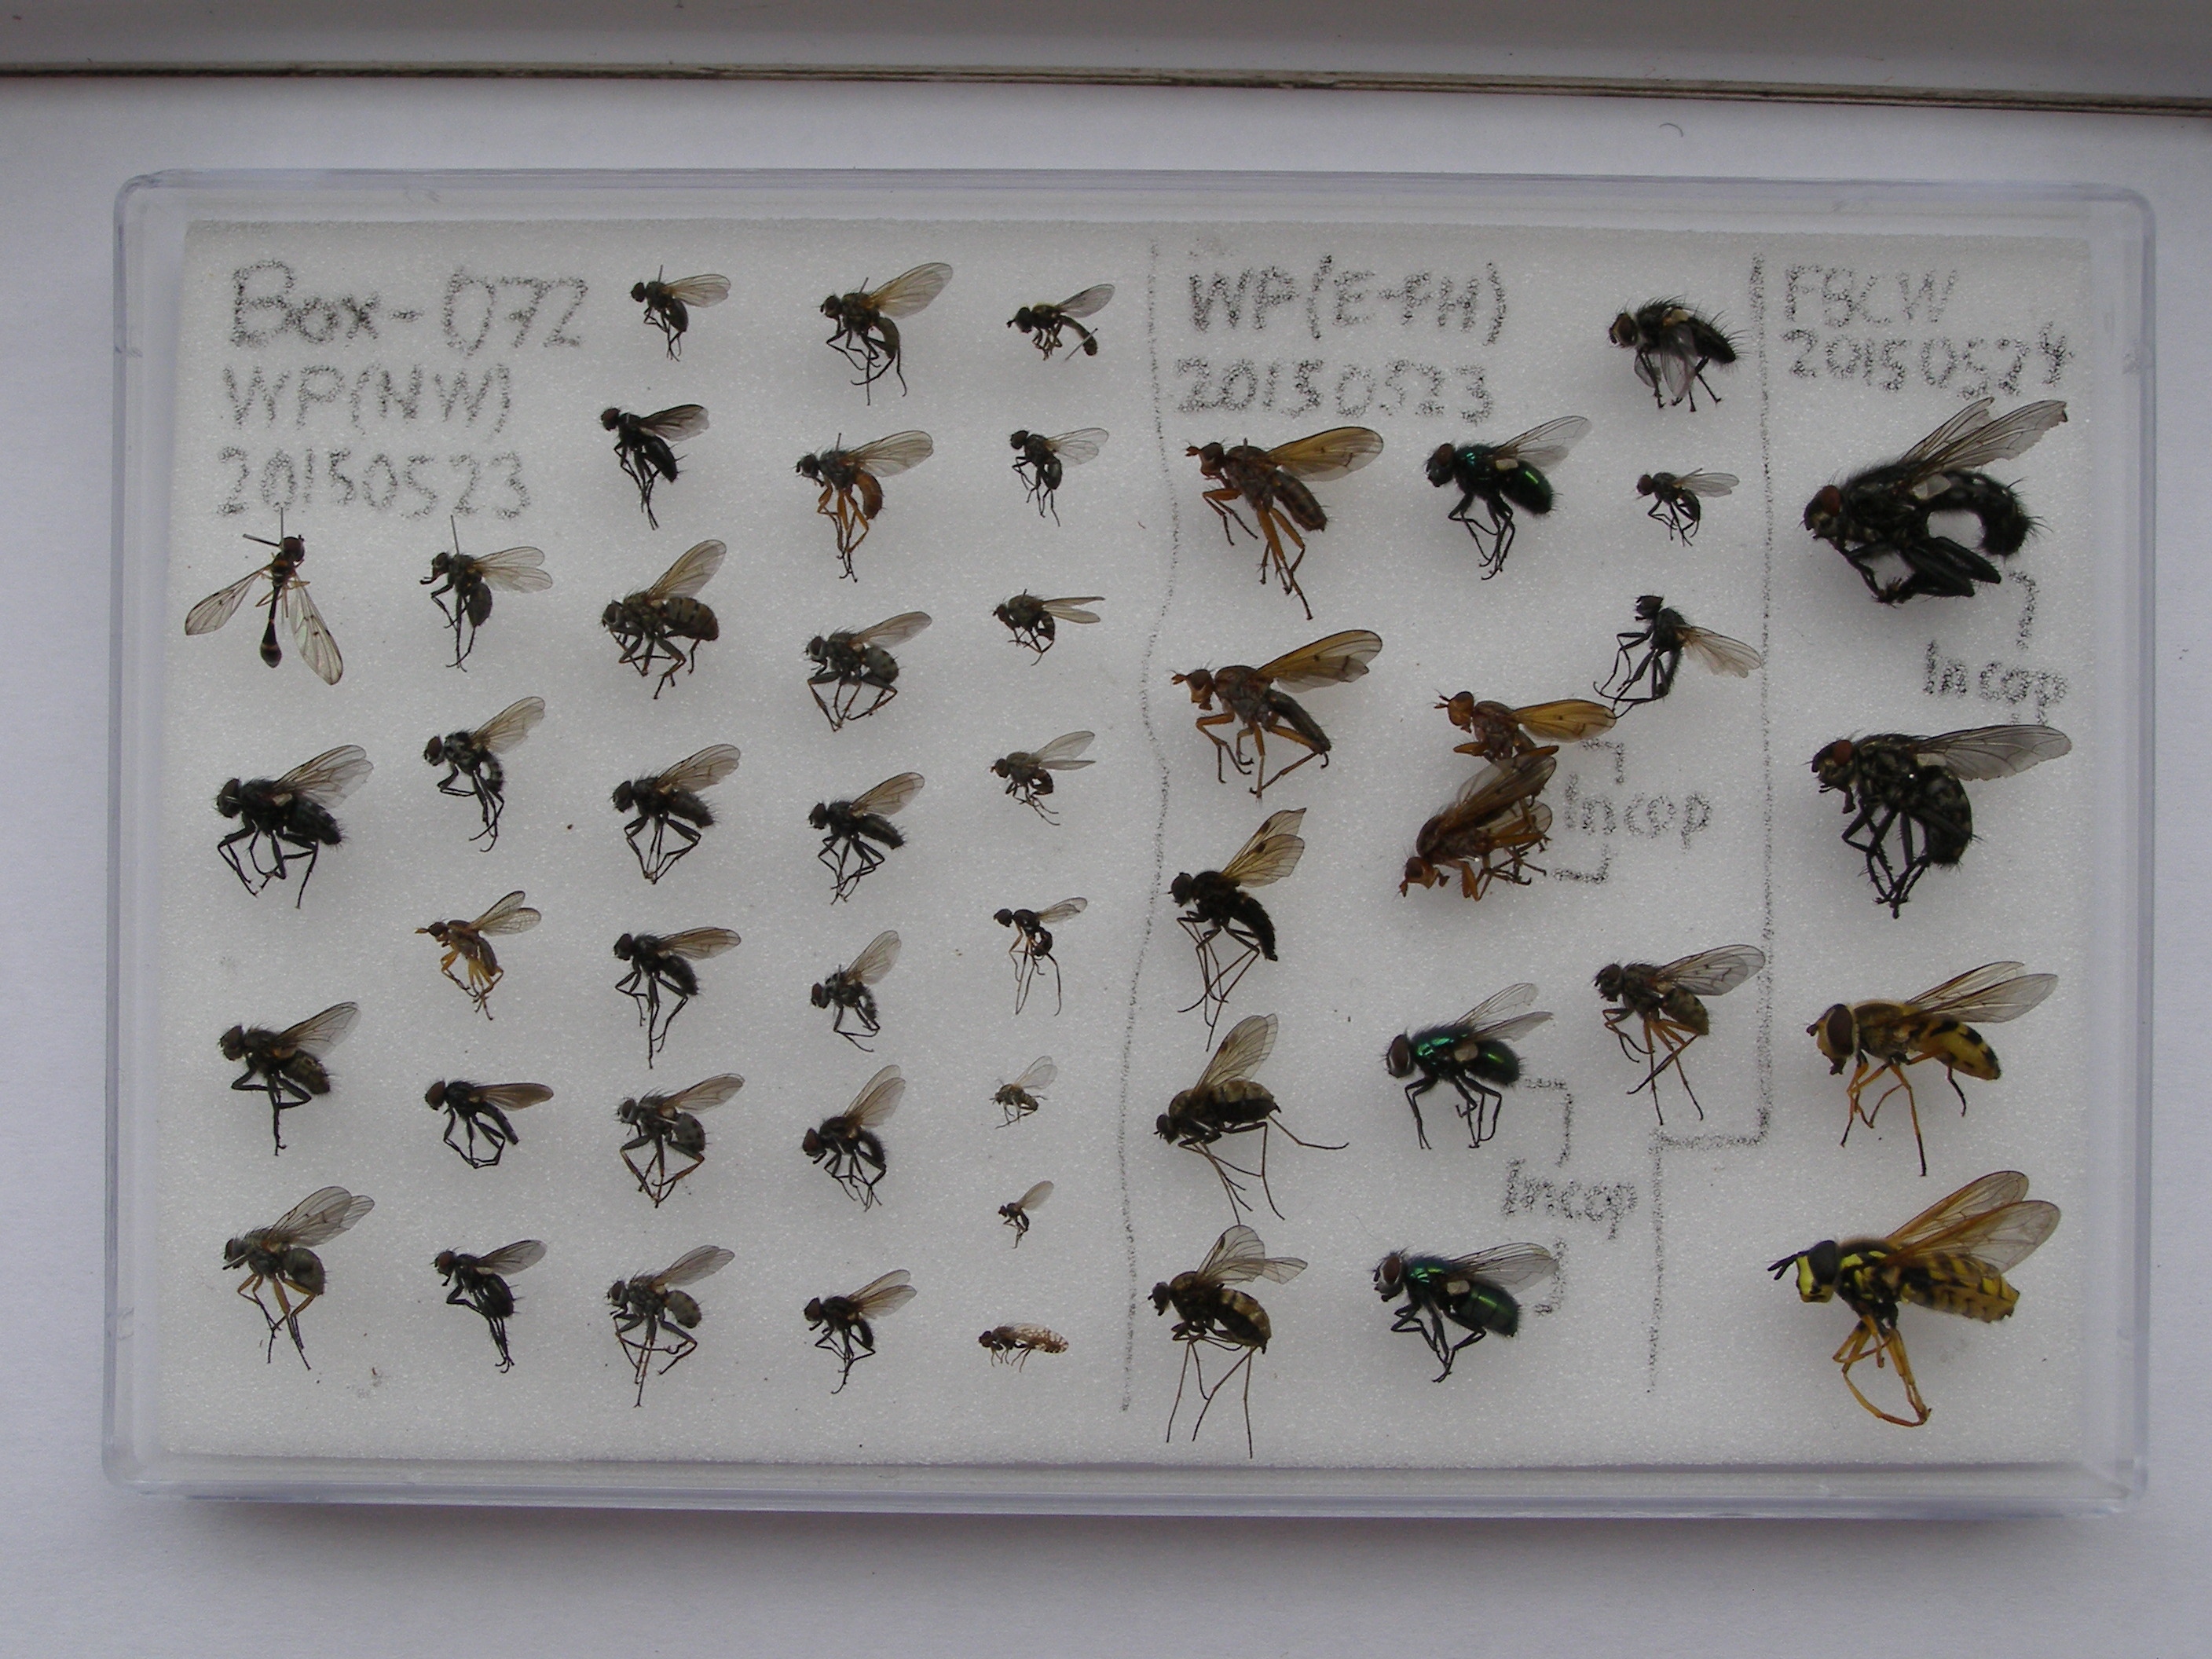 Box-072
WP(NW)
20150523
WP(E-PH)
20150523
Incop
Incop
FBCW
20150524
Incop